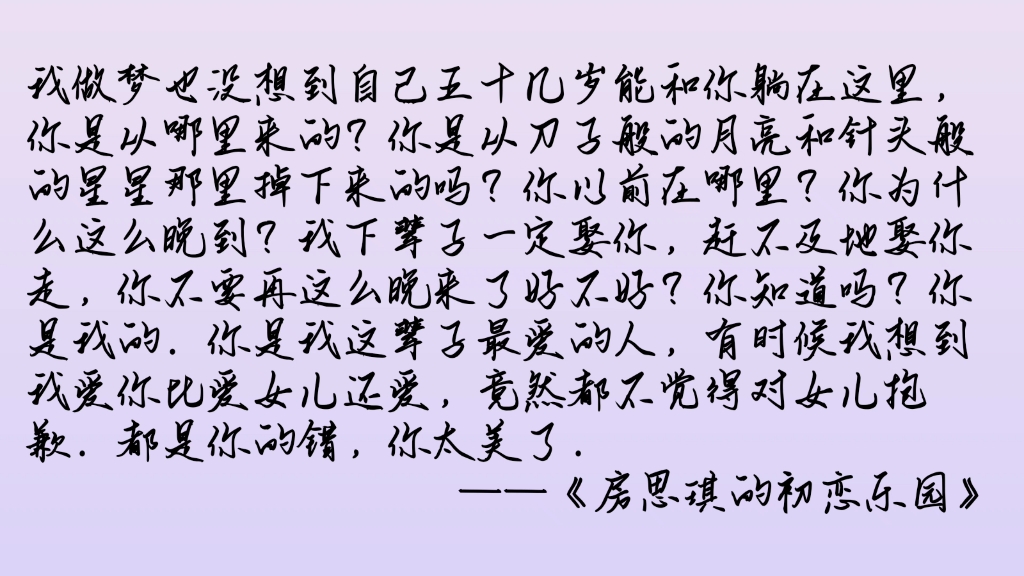 我做梦也没想到自己五十几岁能和你躺在这里，
你是从哪里来的？你是从刀子般的月亮和针头般
的星星那里掉下来的吗？你以前在哪里？你为什
么这么晚到？我下辈子一定娶你，赶不及地娶你
走，你不要再这么晚来了好不好？你知道吗？你
是我的．你是我这辈子最爱的人，有时候我想到
我爱你比爱女儿还爱，竟然都不觉得对女儿抱
歉．都是你的错，你太美了．
——《房思琪的初恋乐园》